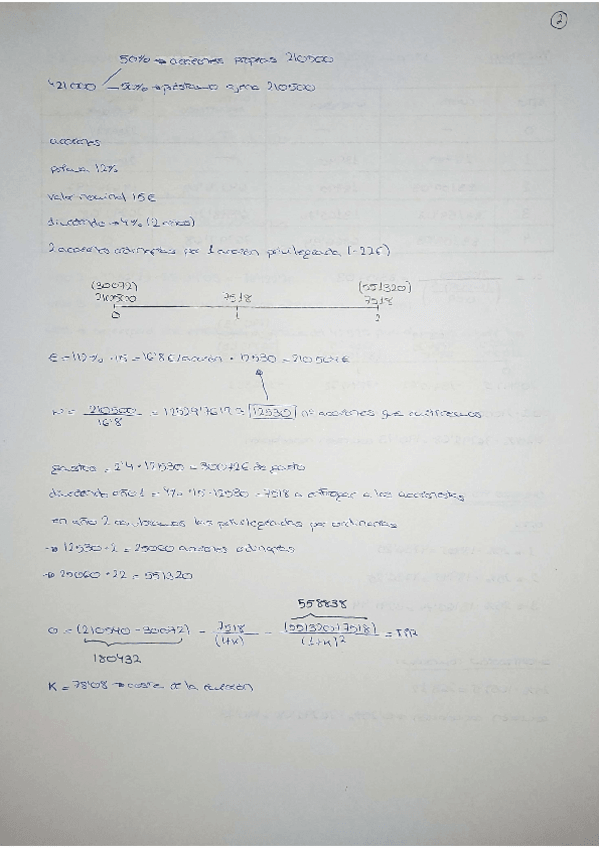 2
50% → acciones propias 210500
421000 — 50% → préstamo 210500
acciones
prima 12%
valor nominal 15€
dividendo → 4% (2 años)
2 acciones ordinarias por 1 acción privilegiada (→22€)
(30072) (551320)
7518 7518
0 1 2
E = 112% · 15 = 16'8€/acción · 12530 = 210504€
N = 210500 / 16'8 = 12529'7619 ≈ 12530 nº acciones que emitiremos
gastos = 2'4 · 12530 = de gasto
dividendo año 1 = 4% · 15 · 12530 = 7518 a entregar a los accionistas
en año 2 las privilegiadas por ordinarias
→ 12530 · 2 = 25060 acciones ordinarias
→ 25060 · 22 = 551320
558838
0 = (210540 - 30072) - 7518 / (1+K) - (551320+7518) / (1+K)² = TIR
180432
K = 78'08 → coste de la